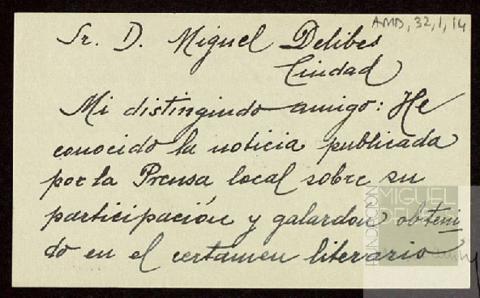 AMD, 32, 1, 14
Sr. D. Miguel Delibes
Ciudad
Mi distinguido amigo: He
conocido la noticia publicada
por la Prensa local sobre su
participación y galardon obteni
do en el certamen literario
FUNDACIÓN
MIGUEL
DELIBES